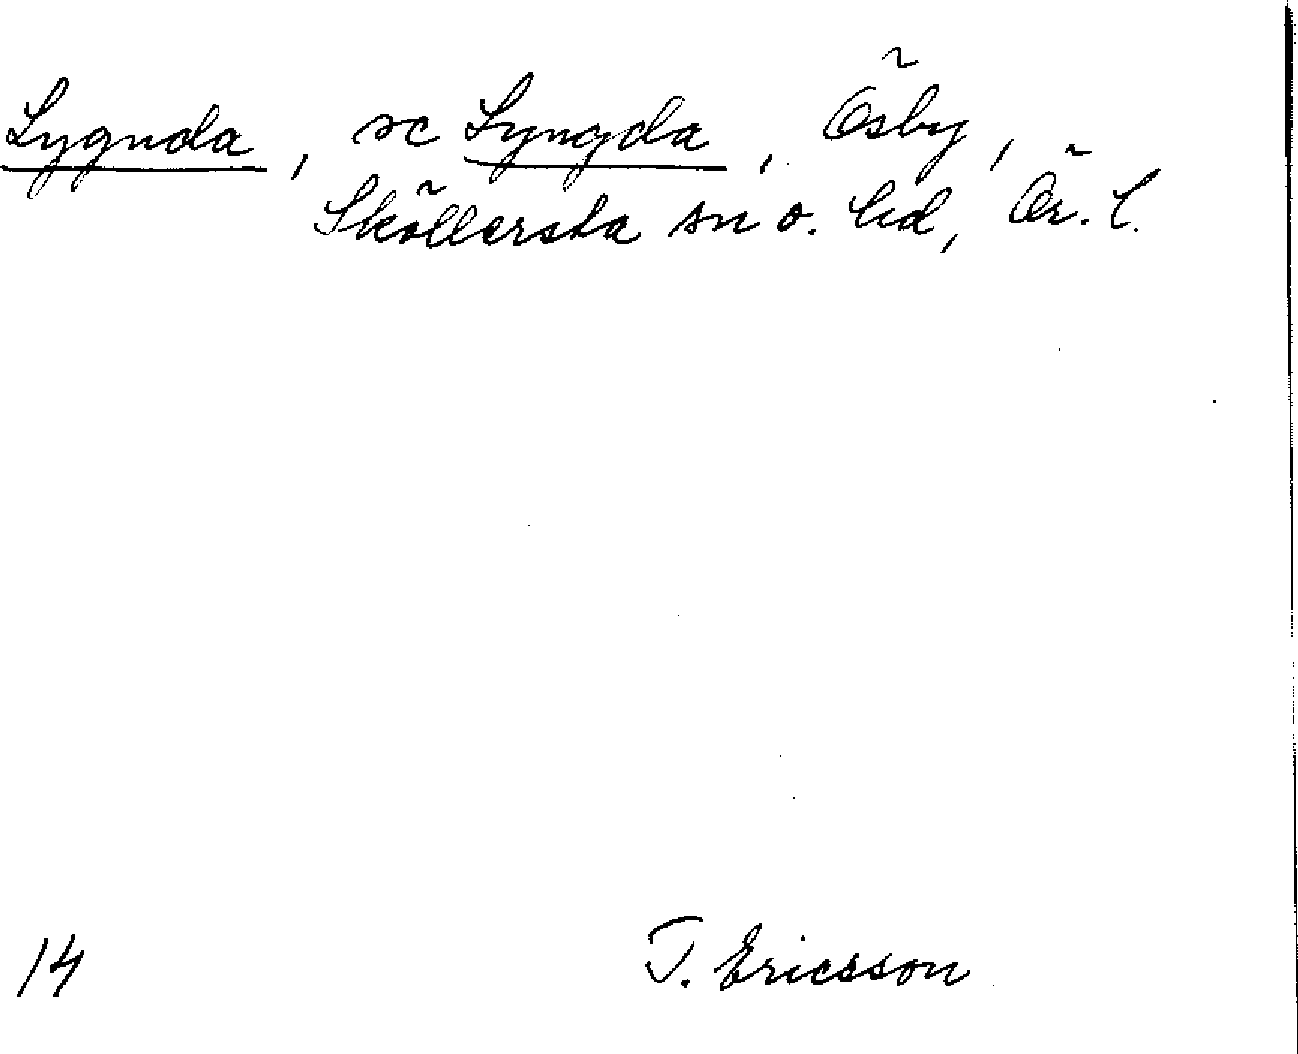 Lygnda, se Lyngda, Ösby,
Sköllersta sn o. hd, Ör. l.
14 T. Ericsson